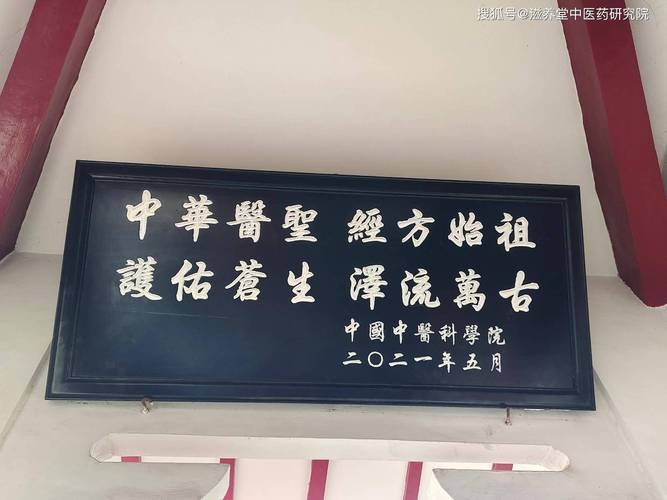 搜狐号@滋养堂中医药研究院
中華醫聖 經方始祖
護佑蒼生 澤流萬古
中國中醫科學院
二〇二一年五月